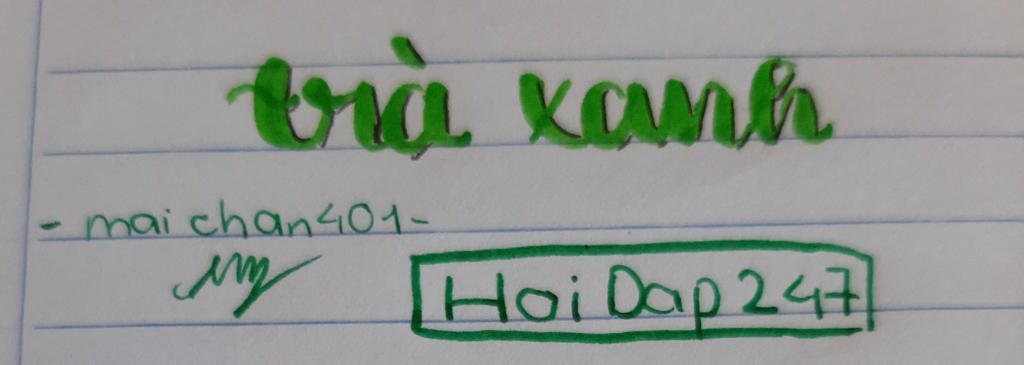 trà xanh
- maichan401-
HoiDap247